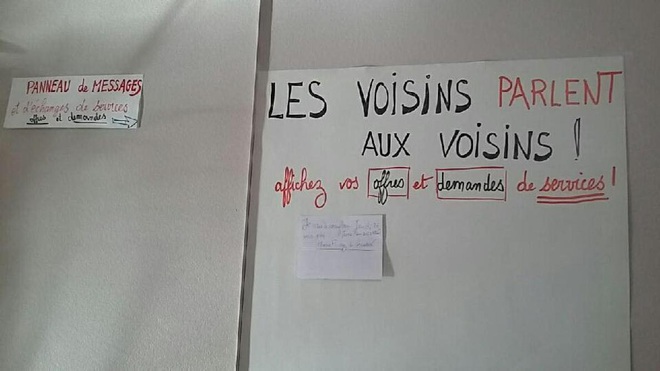 PANNEAU de MESSAGES
et d'échanges de services
offres et demandes
LES VOISINS PARLENT
AUX VOISINS !
affichez vos offres et demandes de services !